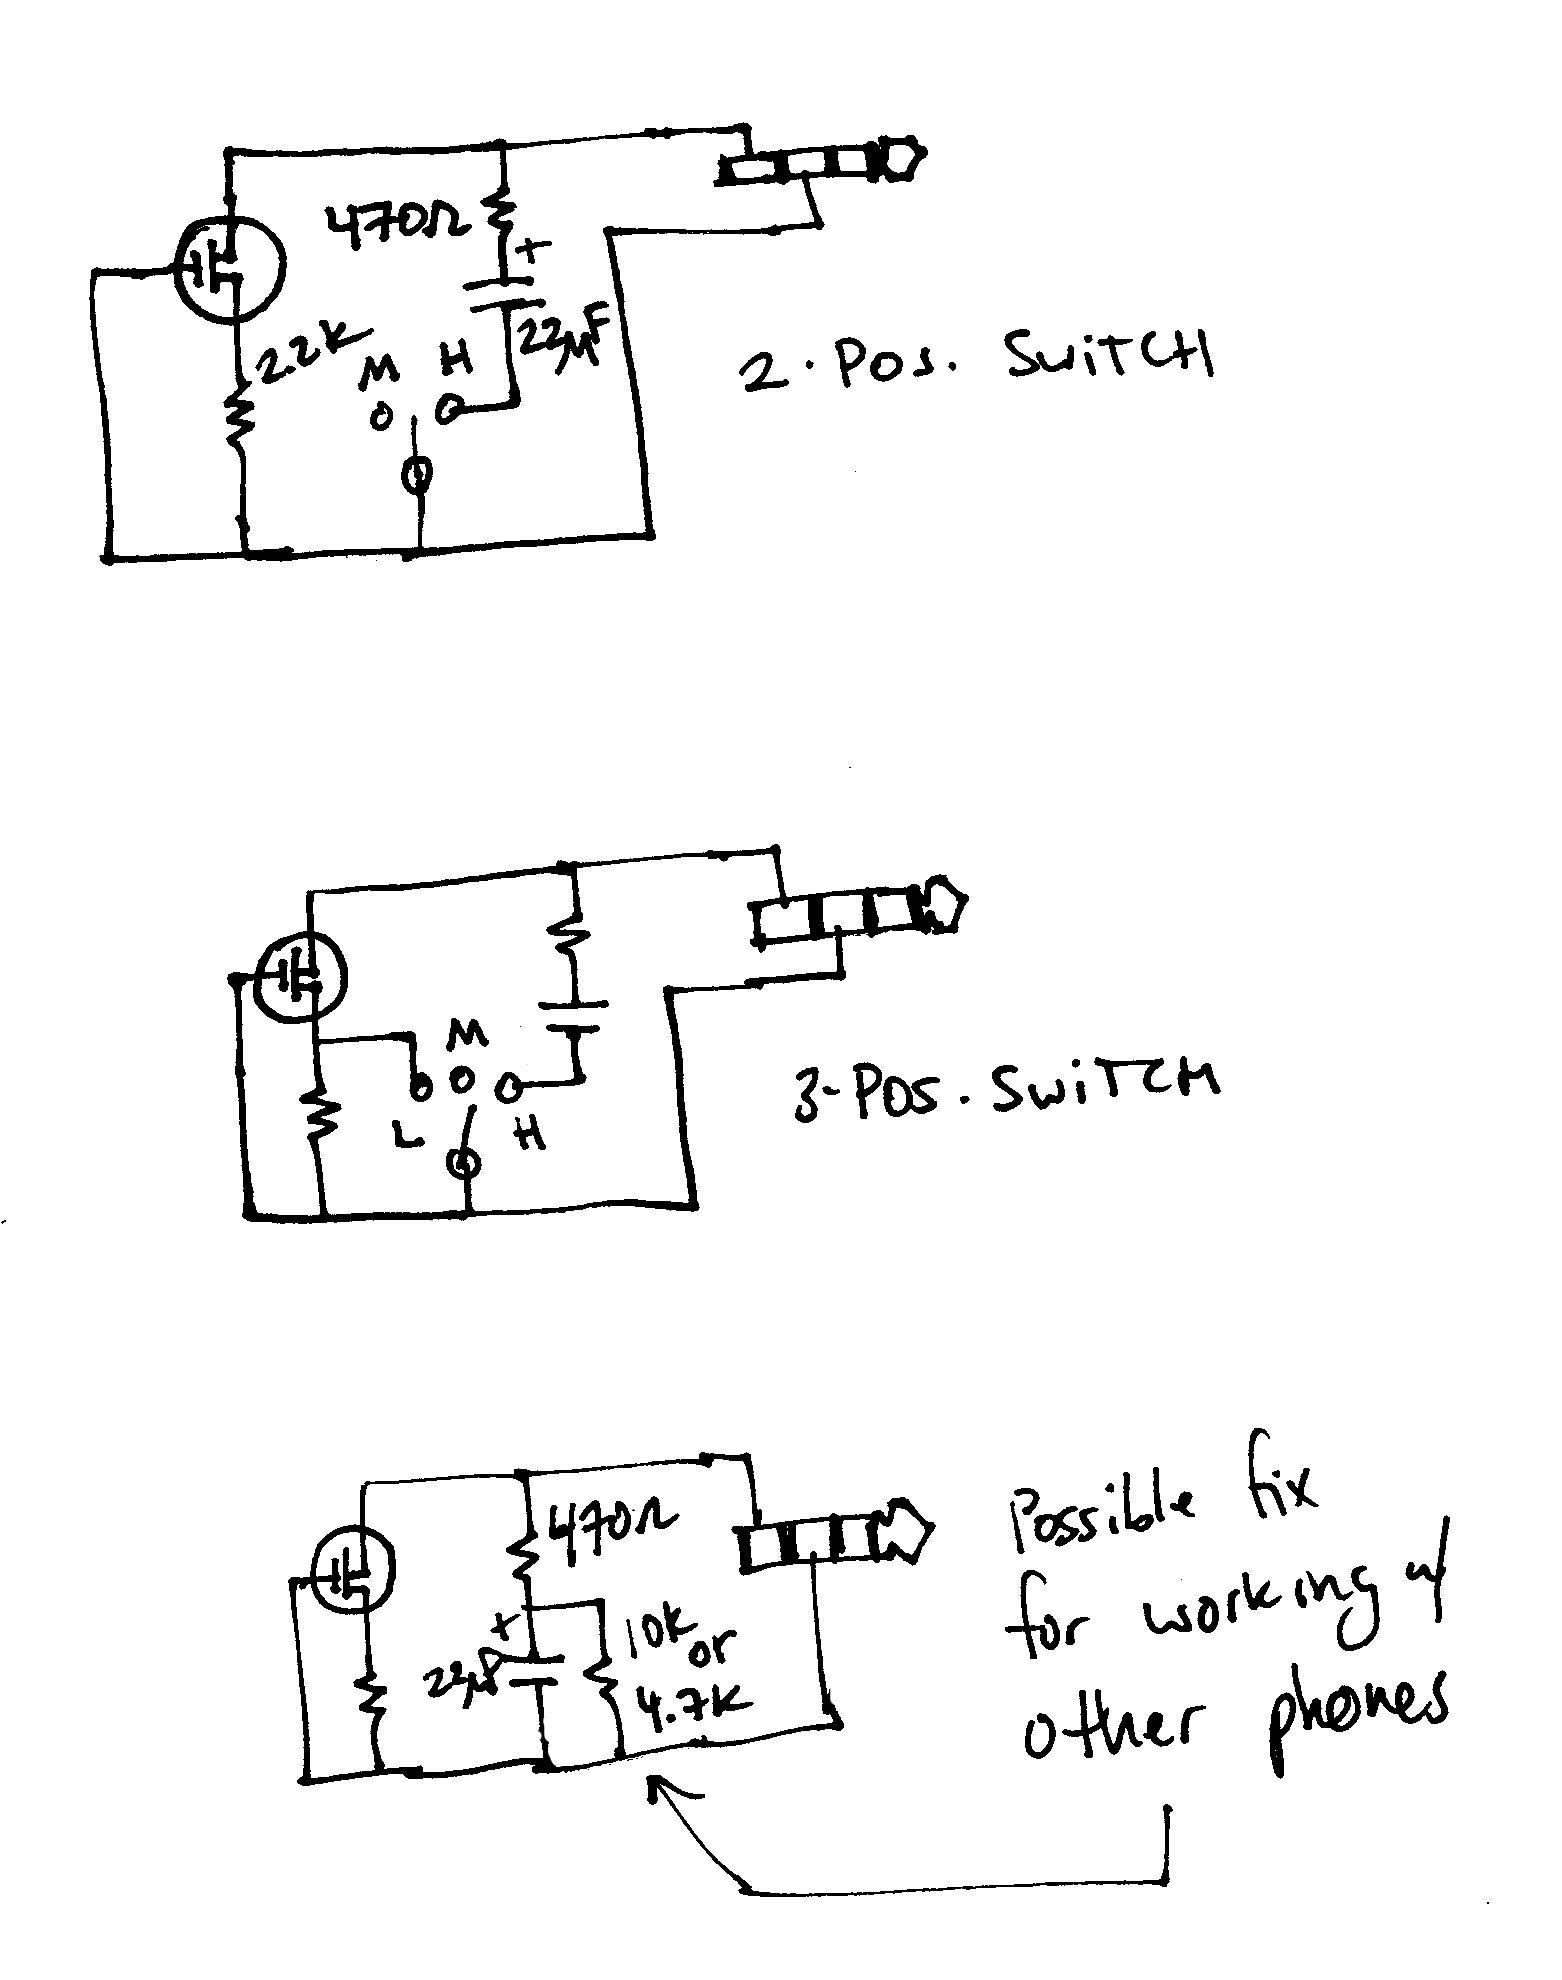 470Ω
+
2.2K
M
H
22µF
2. Pos. SWiTCH
M
L
H
3-Pos. SWiTCH
470Ω
+
22µF
10K or
4.7K
Possible fix
for working w/
other phones